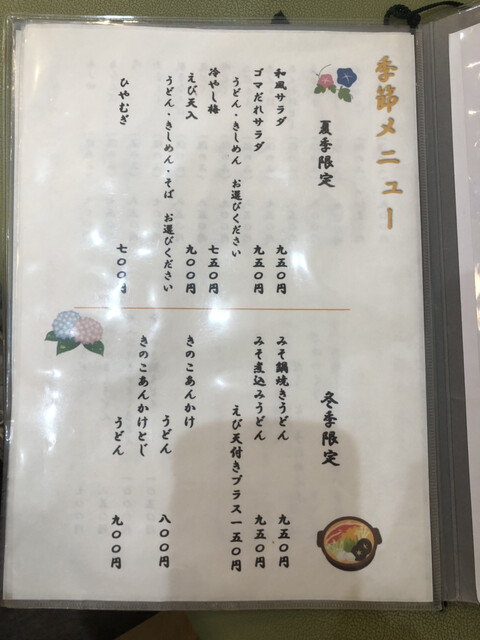 季節メニュー
夏季限定
和風サラダ 九五〇円
ゴマだれサラダ 九五〇円
うどん・きしめん お選びください
冷やし梅 七五〇円
えび天入 九〇〇円
うどん・きしめん・そば お選びください
ひやむぎ 七〇〇円
冬季限定
みそ鍋焼きうどん 九五〇円
みそ煮込みうどん 九五〇円
えび天付きプラス一五〇円
きのこあんかけ
うどん 八〇〇円
きのこあんかけとじ
うどん 九〇〇円